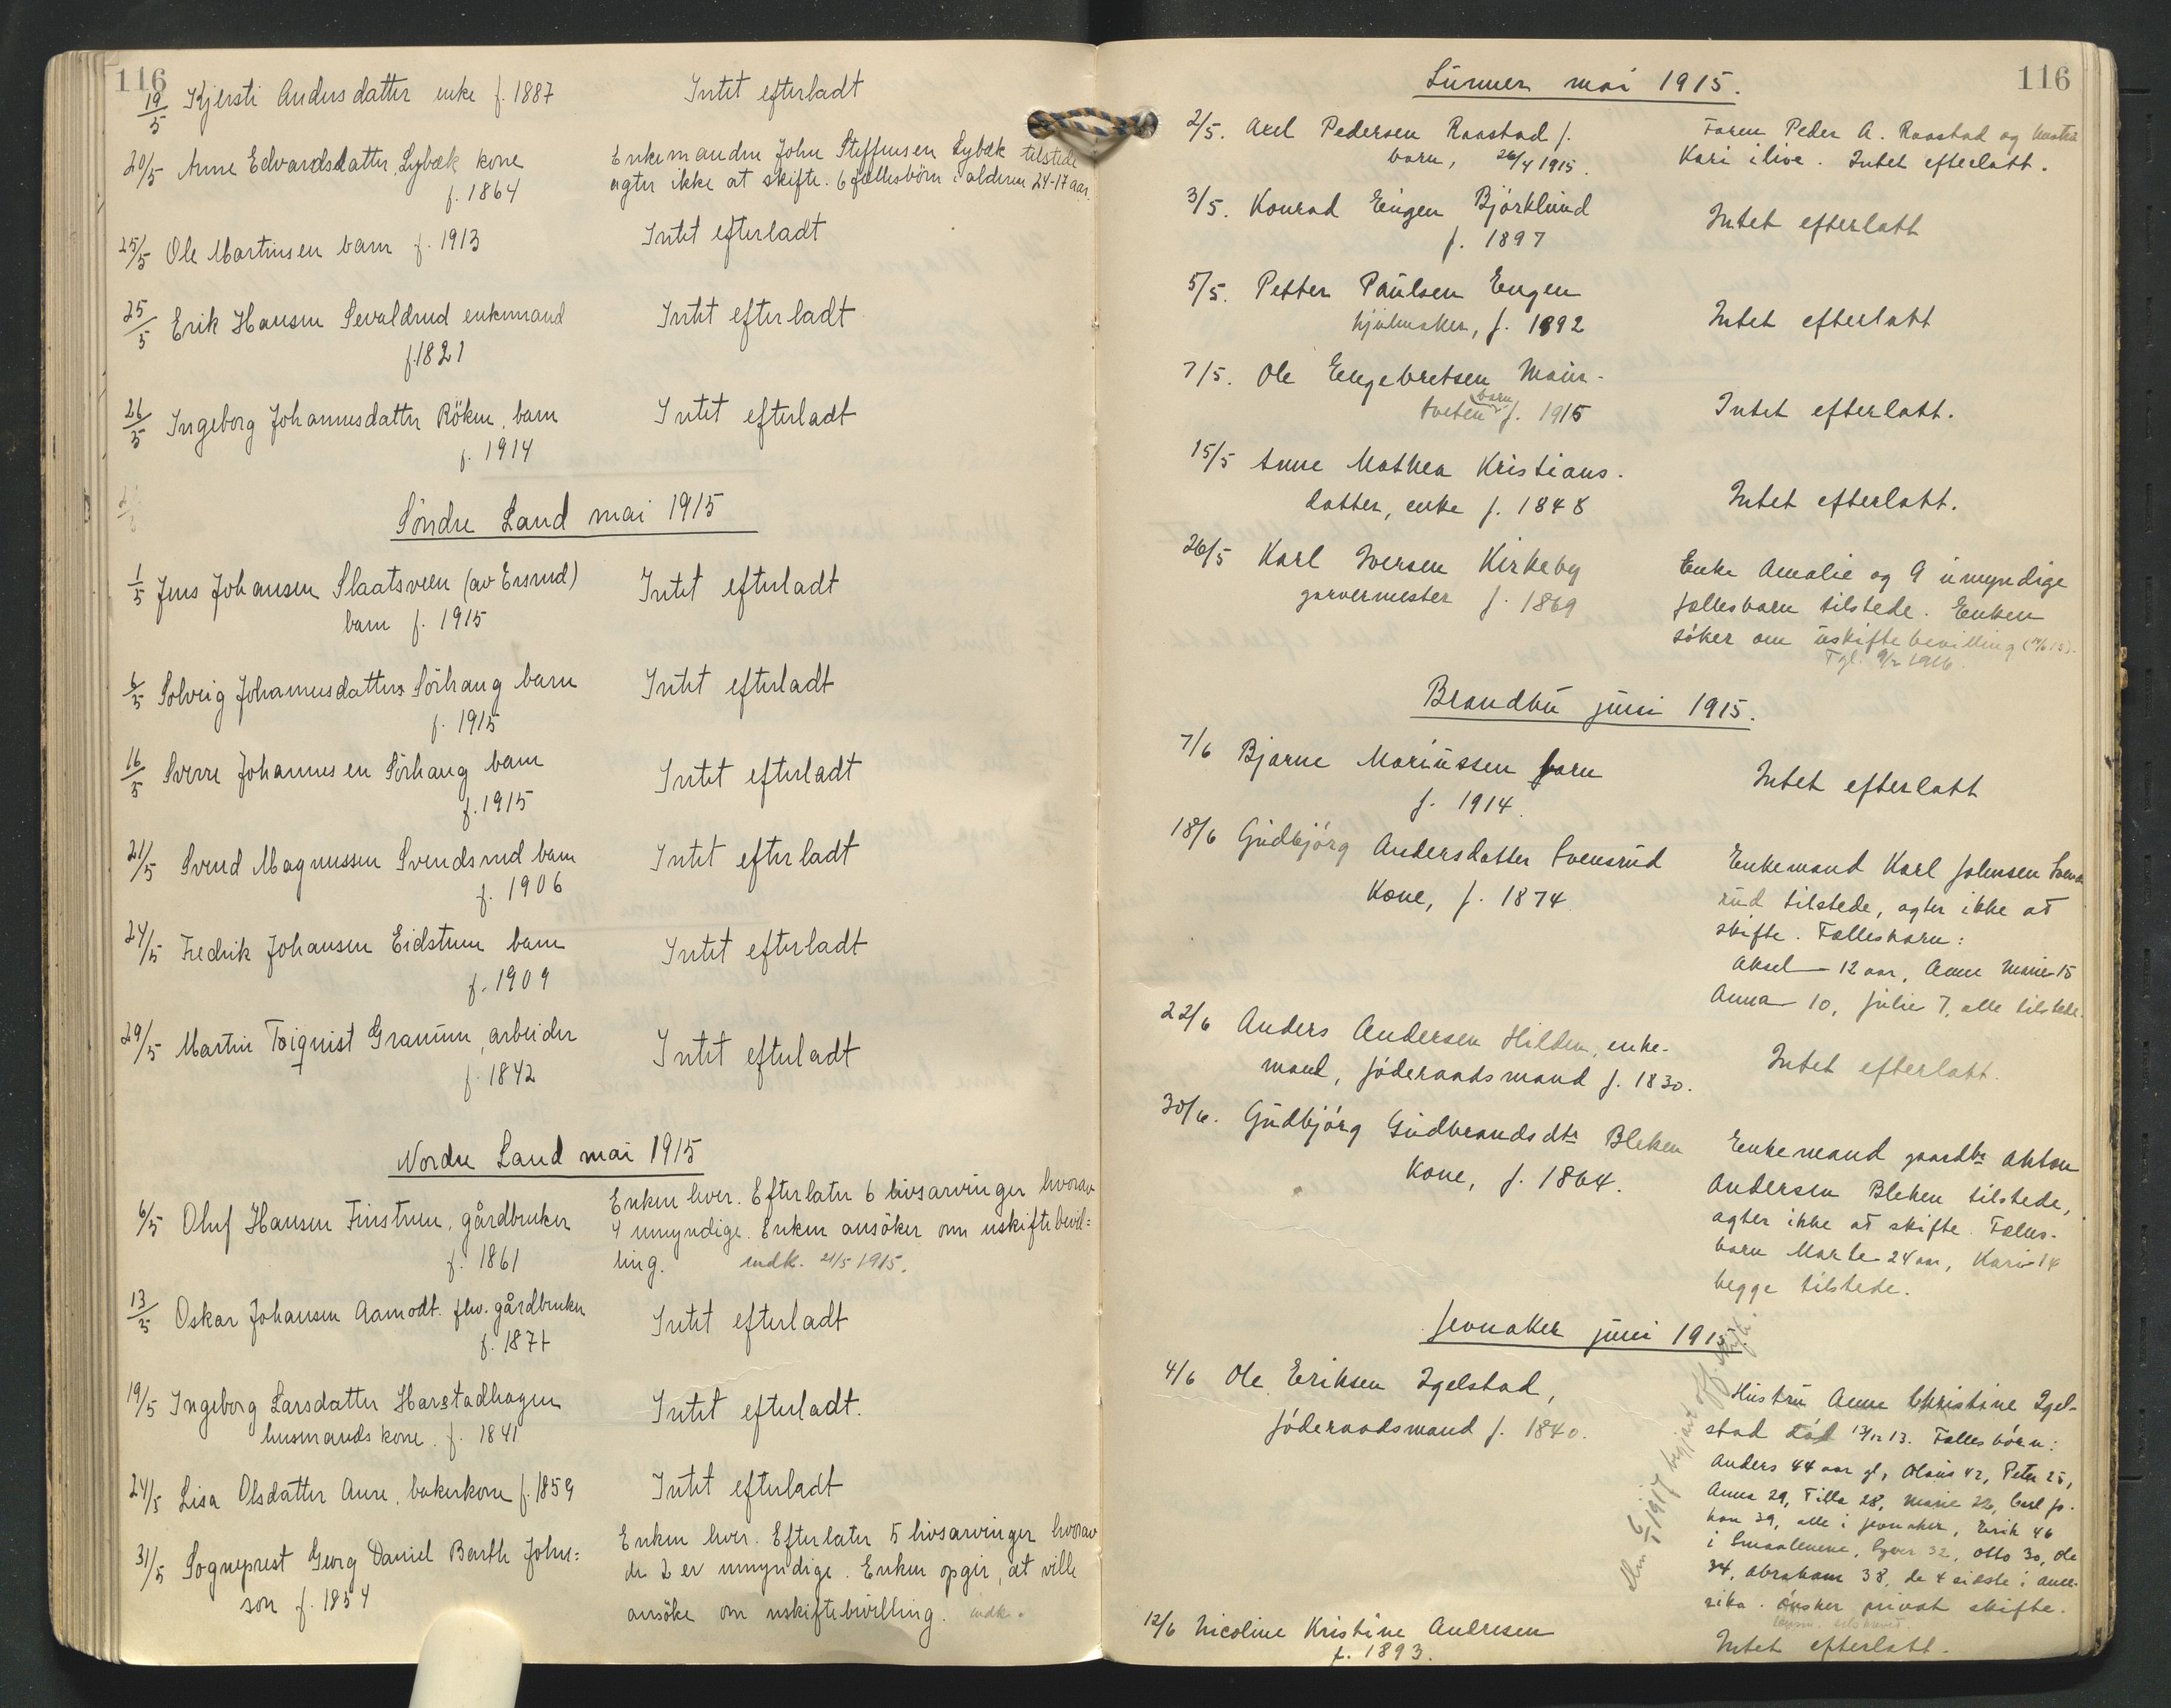 116
19/5 Kjersti Andersdatter enke f. 1887 Intet efterladt
20/5 Anne Edvardsdatter Lybæk kone Enkemanden John Steffensen Lybæk tilstede
f. 1864 agter ikke at skifte. 6 fællesbörn i alderen 24-17 aar
25/5 Ole Martinsen barn f. 1913 Intet efterladt
25/5 Erik Hansen Sevaldrud enkemand Intet efterladt
f. 1821
26/5 Ingeborg Johannesdatter Röken, barn Intet efterladt
f. 1914
Söndre Land mai 1915
1/5 Jens Johansen Slaatsveen (av Ersrud) Intet efterladt
barn f. 1915
6/5 Solveig Johannesdatter Sörhaug barn Intet efterladt
f. 1915
16/5 Sverre Johannesen Sörhaug barn Intet efterladt
f. 1915
21/5 Svend Magnussen Svendsrud barn Intet efterladt
f. 1906
24/5 Fredrik Johansen Eidstuen barn Intet efterladt
f. 1909
29/5 Martin Toiquist Granum, arbeider Intet efterladt
f. 1842
Nordre Land mai 1915
6/5 Oluf Hansen Finstuen, gårdbruker Enken lever. Efterlater 6 livsarvinger hvorav
f. 1861 4 umyndige. Enken ansöker om uskiftebevil=
ling. medk. 21/5 1915.
13/5 Oskar Johansen Aamodt. fhv. gårdbruker Intet efterladt
f. 1871
19/5 Ingeborg Larsdatter Harstadhagen Intet efterladt.
husmands kone. f. 1841
24/5 Lisa Olsdatter Aure, bakerkone f. 1859 Intet efterladt
31/5 Sogneprest Georg Daniel Barth John= Enken lever. Efterlater 5 livsarvinger hvorav
son f. 1854 de 2 er umyndige. Enken opgir, at ville
ansöke om uskiftebevilling. medk.
116
Lunner mai 1915.
2/5. Axel Pedersen Raastad f. Faren Peder A. Raastad og hustru
barn, 26/4 1915. Kari ilive. Intet efterlatt.
3/5. Konrad Eugen Björklund Intet efterlatt
f. 1897
5/5. Petter Paulsen Engen Intet efterlatt
hjulmaker, f. 1892
7/5. Ole Engebretsen Moür-
tveten barn f. 1915 Intet efterlatt.
15/5 Anne Mathea Kristians-
datter, enke f. 1848 Intet efterlatt.
26/5 Karl Iversen Kirkeby Enke Amalie og 9 umyndige
garvermester f. 1869 fællesbarn tilstede. Enken
söker om uskiftebevilling
Tgl. 9/2 1916.
Brandbu juni 1915.
7/6 Bjarne Mariussen barn Intet efterlatt
f. 1914
18/6 Gudbjörg Andersdatter Svensrud Enkemand Karl Johnsen Svens
Kone, f. 1874 rud tilstede, agter ikke at
skifte. Fællesbarn:
Aksel - 12 aar, Anne Marie 15
Anna 10, Julie 7, alle tilstede.
22/6 Anders Andersen Hilden, enke-
mand, föderaadsmand f. 1830. Intet efterlatt.
30/6. Gudbjörg Gudbrandsdtr Bleken Enkemand gaardbr Anton
Kone, f. 1864. Andersen Bleken tilstede,
agter ikke at skifte. Fælles-
barn Marte 24 aar, Kari 14
begge tilstede.
Jevnaker juni 1915
4/6 Ole Eriksen Igelstad, Hustru Anne Christine Igel-
föderaadsmand f. 1840. stad död 13/12 13. Fælles börn:
Anders 44 aar gl, Olaus 42, Peter 25,
Anna 29, Tilla 28, Marie 22, Carl Jo-
han 39, alle i Jevnaker, Erik 46
i Smaalenene, Syver 32, Otto 30, Ole
34, Abraham 38, de 4 sidste i Ame-
rika. önsker privat skifte.
1917 begjært off. skifte.
12/6 Nicoline Kristine Andresen Intet efterlatt.
f. 1893.